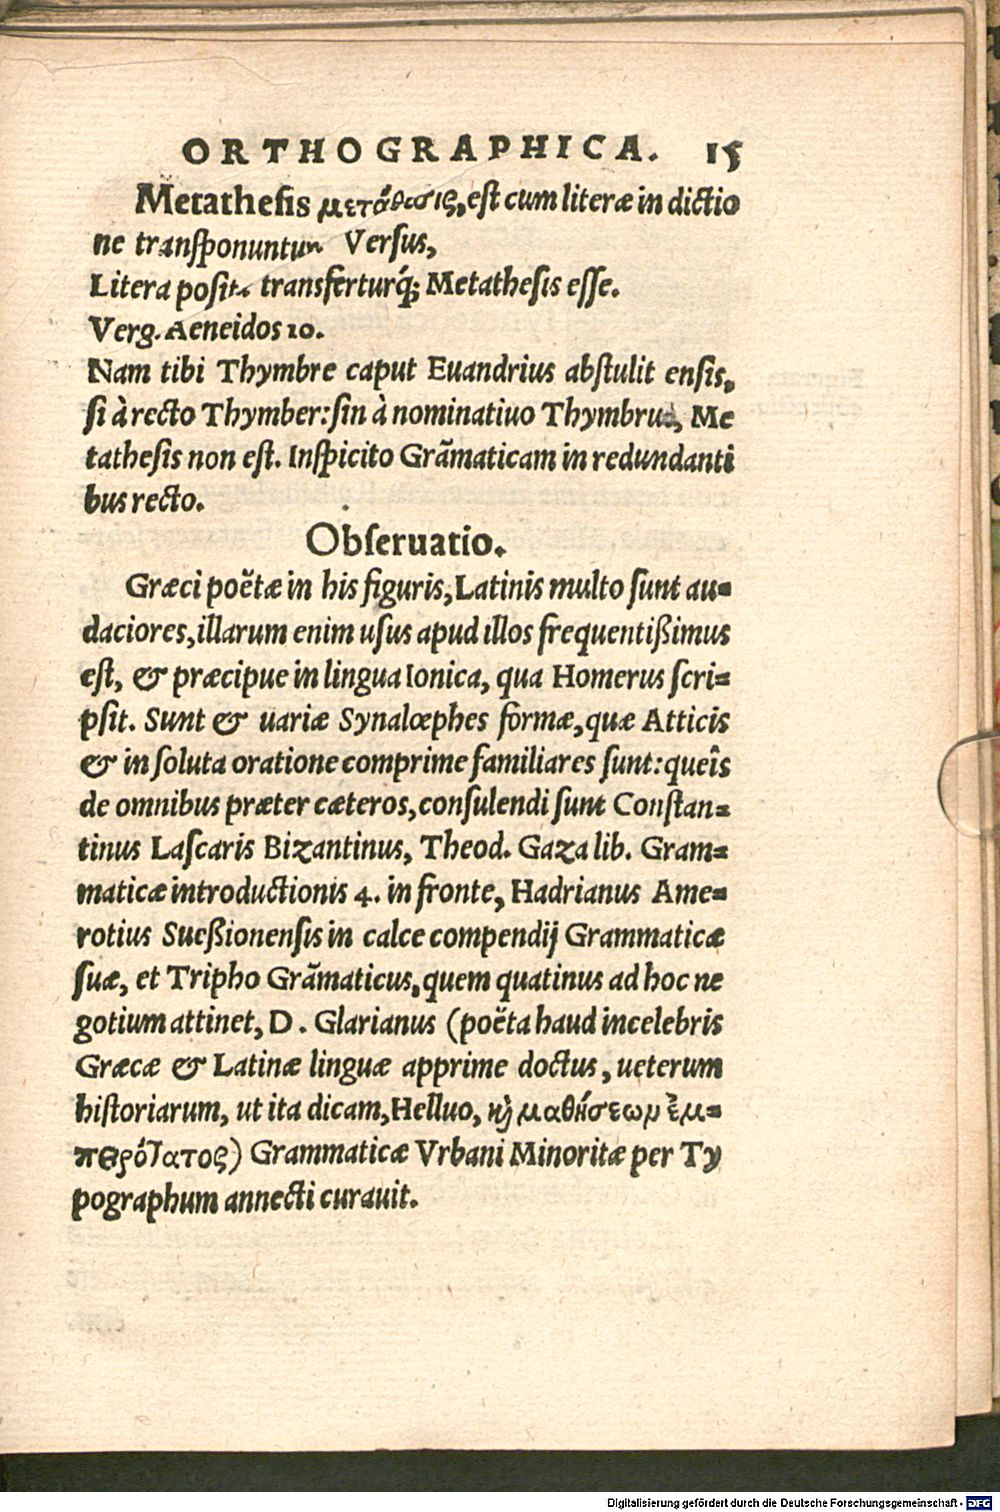 ORTHOGRAPHICA. 15
Metathesis μετάθεσις, est cum literæ in dictio
ne transponuntur Versus,
Litera posita transferturq́; Metathesis esse.
Verg. Aeneidos 10.
Nam tibi Thymbre caput Euandrius abstulit ensis,
si à recto Thymber: sin à nominatiuo Thymbrus, Me
tathesis non est. Inspicito Grãmaticam in redundanti
bus recto.
Obseruatio.
Græci poëtæ in his figuris, Latinis multo sunt au-
daciores, illarum enim usus apud illos frequentißimus
est, & præcipue in lingua Ionica, qua Homerus scri-
psit. Sunt & uariæ Synalœphes formæ, quæ Atticis
& in soluta oratione comprime familiares sunt: queîs
de omnibus præter cæteros, consulendi sunt Constan-
tinus Lascaris Bizantinus, Theod. Gaza lib. Gram-
maticæ introductionis 4. in fronte, Hadrianus Ame-
rotius Sueßionensis in calce compendij Grammaticæ
suæ, et Tripho Grãmaticus, quem quatinus ad hoc ne
gotium attinet, D. Glarianus (poëta haud incelebris
Græcæ & Latinæ linguæ apprime doctus, ueterum
historiarum, ut ita dicam, Helluo, καὶ μαθήσεων ἐμ-
πειρότατος) Grammaticæ Vrbani Minoritæ per Ty
pographum annecti curauit.
Digitalisierung gefördert durch die Deutsche Forschungsgemeinschaft - DFG